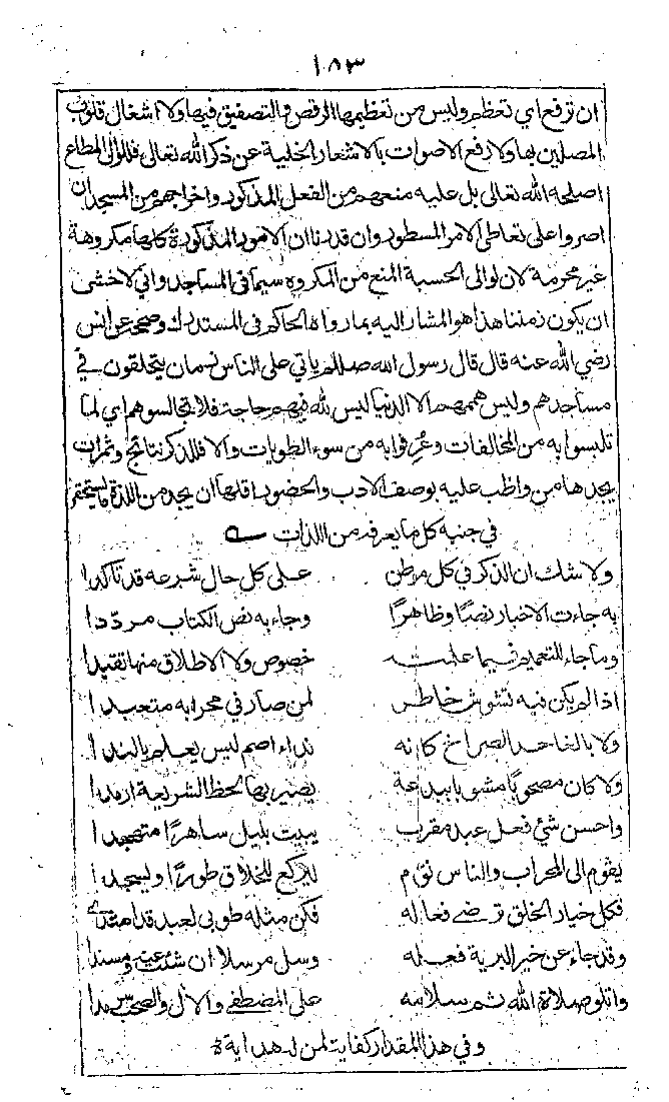 ١٥٣
ان ترفع اي تعظم وليس من تعظيمها الرقص والتصفيق فيها ولا اشغال قلوب
المصلين بها ولا رفع الاصوات بالاشعار الخلية عن ذكر الله تعالى فللوالى المطاع
اصلحه الله تعالى بل عليه منعهم من الفعل المذكور واخراجهم من المسجد ان
اصروا على تعاطى الامر المسطور وان قدرنا ان الامور المذكورة كلها مكروهة
غير محرمة لان لوالى الحسبة المنع من المكروه سيما فى المساجد واني لاخشى
ان يكون زمننا هذا هو المشار اليه بما رواه الحاكم فى المستدرك وصححه عن انس
رضي الله عنه قال قال رسول الله صللم ياتي على الناس زمان يتحلقون في
مساجدهم وليس هممهم الا الدنيا ليس لله فيهم حاجة فلا تجالسوهم اي لما
تلبسوا به من المخالفات وغرقوا به من سوء الطويات والا فللذكر نتائج وثمرات
يجدها من واظب عليه بوصف الادب والحضور اقلها ان يجد من اللذة ما يستحقر
في جنبه كل ما يعرفه من اللذات
ولا شك ان الذكر في كل موطن على كل حال شرعه قد تاكدا
به جاءت الاخبار نصًا وظاهرًا وجاء به نص الكتاب مرددا
وما جاء للتعميم فيما علمته خصوص ولا الاطلاق منها تقيدا
اذا لم يكن فيه تشوش خاطر لمن صار في محرابه متعبدا
ولا بالغا حد الصراخ كانه نداء اصم ليس يعلم بالندا
ولا كان مصحوبًا مشوبا ببدعة يصير بها لحظ الشريعة ارمدا
واحسن شئ فعل عبد مقرب يبيت بليل ساهرًا متهجدا
يقوم الى المحراب والناس نوّم ليركع للخلاق طورًا ويسجدا
فكل خيار الخلق ترضى فعاله فكن مثله طوبى لعبد قد اهتدى
وقد جاء عن خير البرية فعله وسل مرسلا ان شئت عنه ومسندا
واتلو صلاة الله ثم سلامه على المصطفى والال والصحب سرمدا
وفي هذا المقدار كفاية لمن له هداية